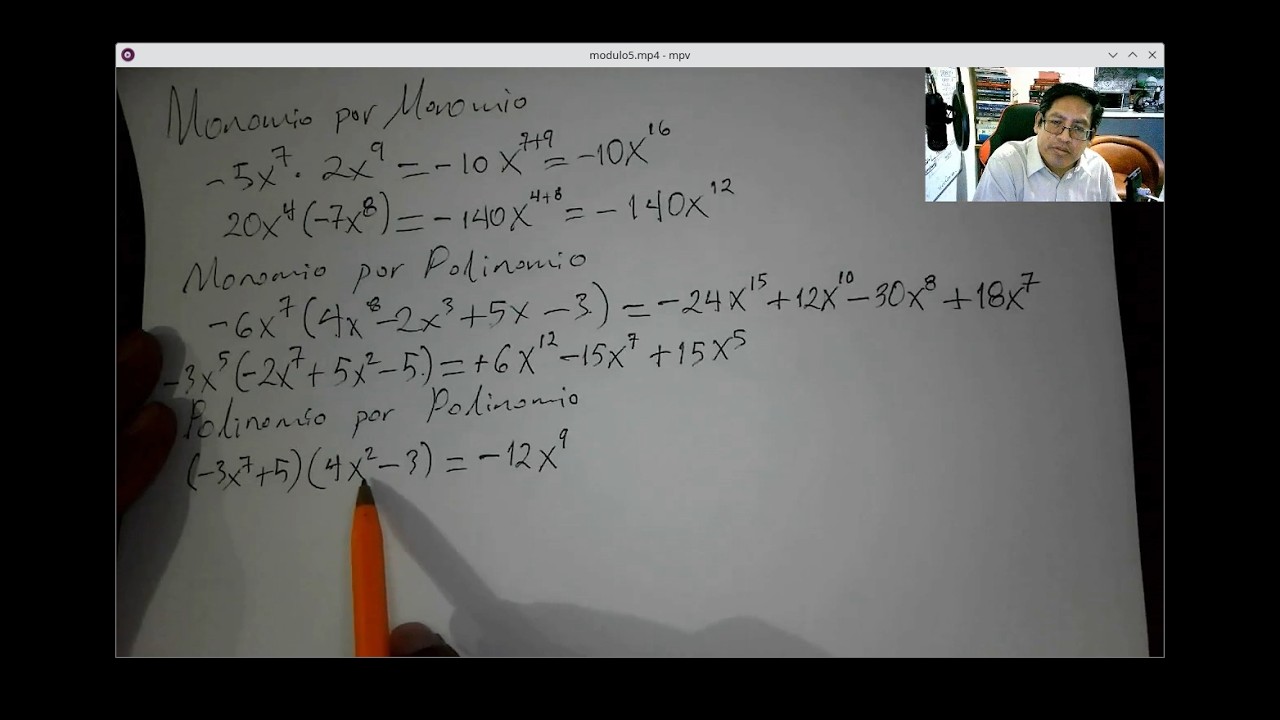 modulo5.mp4 - mpv
Monomio por Monomio
-5x⁷ · 2x⁹ = -10x⁷⁺⁹ = -10x¹⁶
20x⁴(-7x⁸) = -140x⁴⁺⁸ = -140x¹²
Monomio por Polinomio
-6x⁷(4x⁸-2x³+5x-3) = -24x¹⁵+12x¹⁰-30x⁸+18x⁷
-3x⁵(-2x⁷+5x²-5) = +6x¹²-15x⁷+15x⁵
Polinomio por Polinomio
(-3x⁷+5)(4x²-3) = -12x⁹